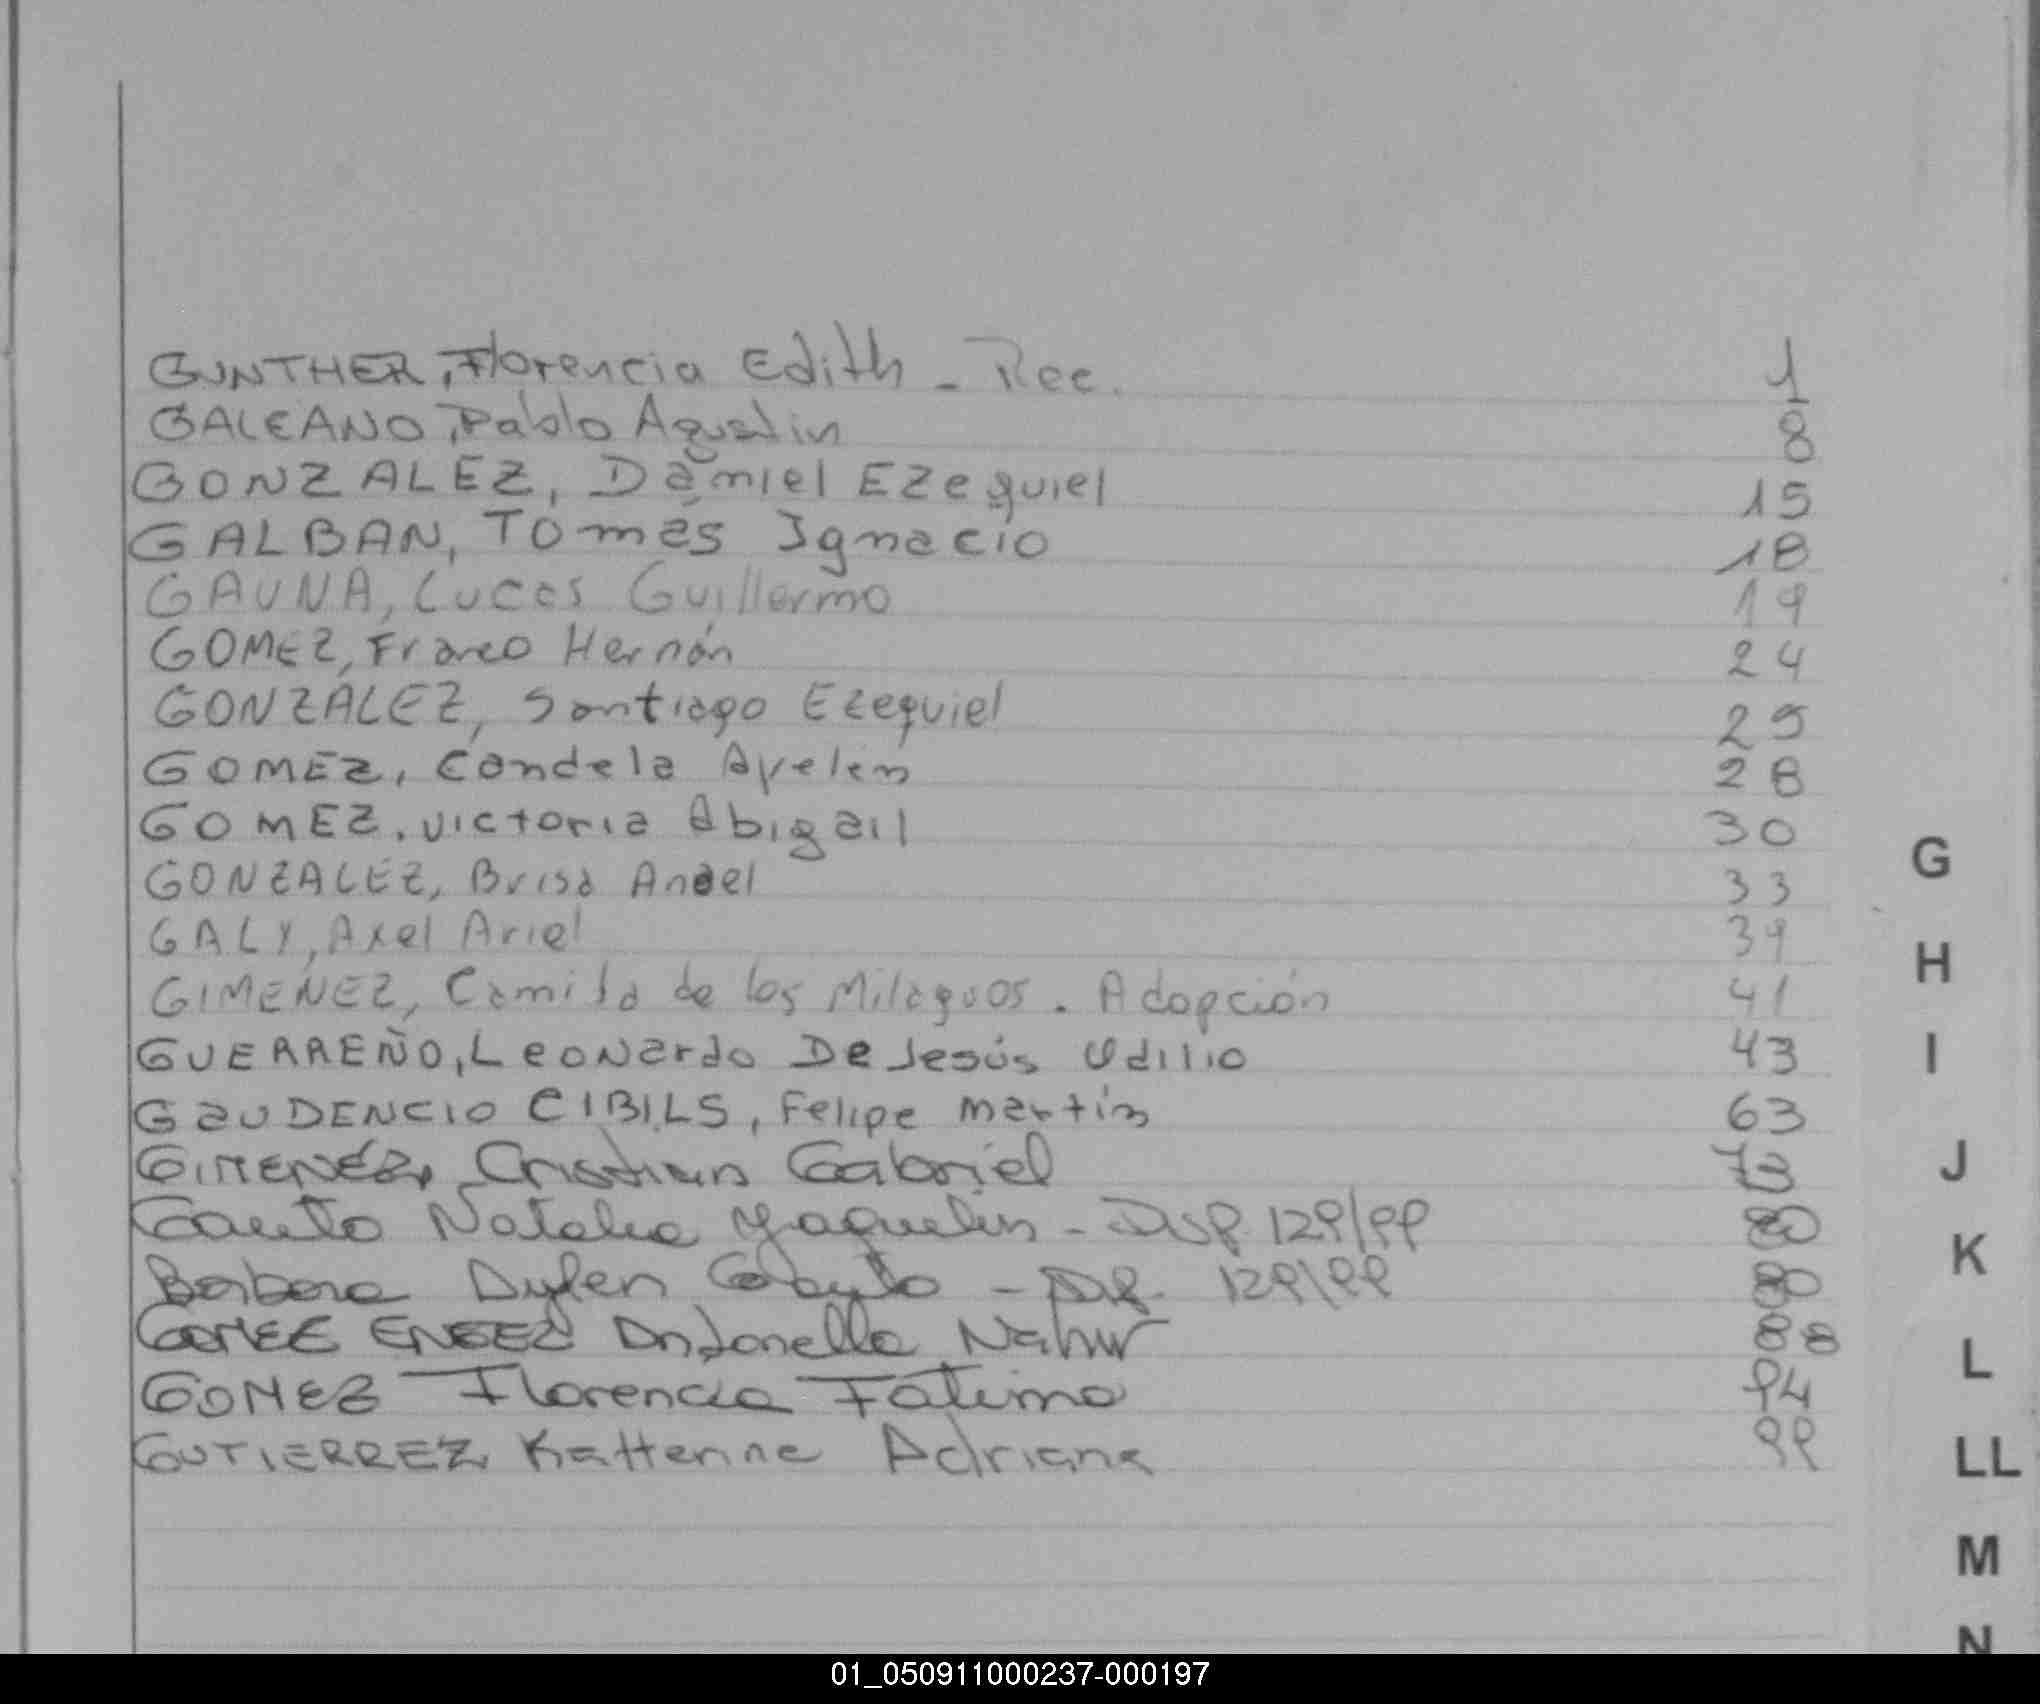 GUNTHER, Florencia Edith - Rec. 1
GALEANO, Pablo Agustin 8
GONZALEZ, Damiel Ezequiel 15
GALBAN, Tomás Ignacio 18
GAUNA, Lucas Guillermo 19
GOMEZ, Franco Hernán 24
GONZÁLEZ, Santiago Ezequiel 25
GOMEZ, Candela Ayelen 28
GOMEZ, Victoria Abigail 30
GONZALEZ, Brisa 33
GALY, Axel Ariel 39
GIMENEZ, Camila de los Milagros. Adopción 41
GUERREÑO, Leonardo De Jesús Odilio 43
GAUDENCIO CIBILS, Felipe Martin 63
GIMENEZ, Cristian Gabriel 73
Gauto Natalia Yaquelin - Disp. 129/99 80
Barbara Dylen - 129/99 80
GOMEZ Antonella Nahir 88
GOMEZ Florencia Fatima 94
GUTIERREZ Katterine Adriana 99
G
H
I
J
K
L
LL
M
N
01_050911000237-000197